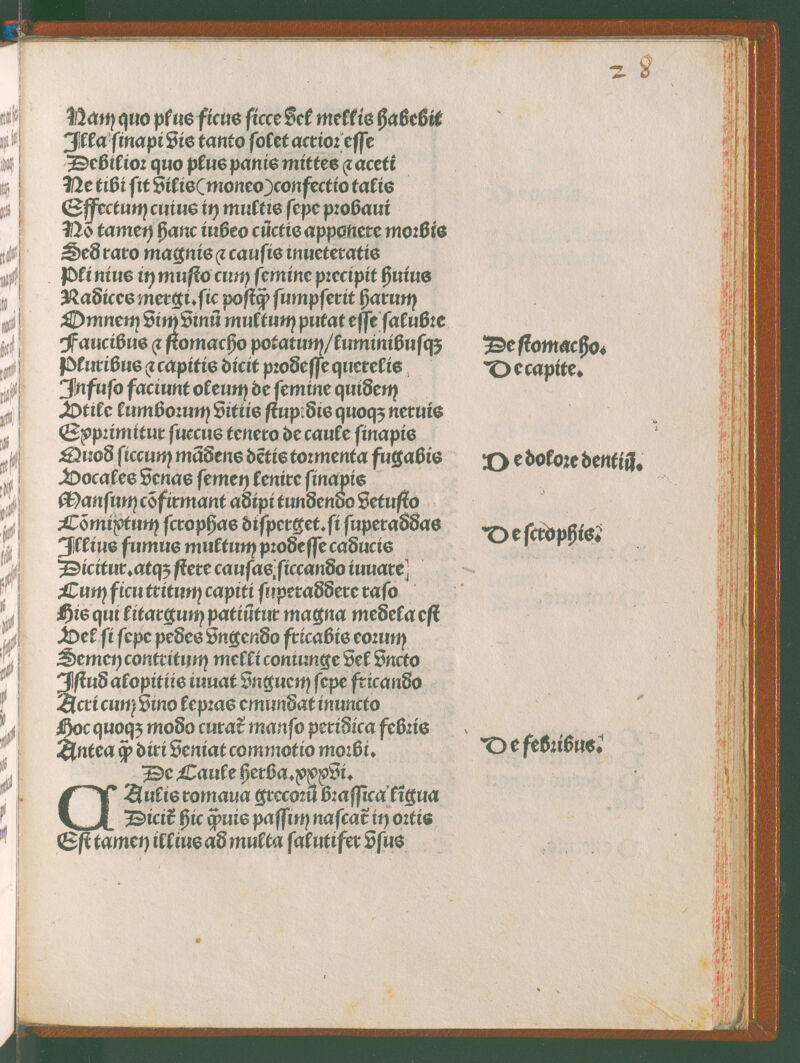 28
Nam quo plus ficus sicce vel mellis habebit
Illa sinapi vis tanto solet acrior esse
Debilior quo plus panis mittes ⁊ aceti
Ne tibi sit vilis(moneo)confectio talis
Effectum cuius in multis sepe probaui
Nō tamen hanc iubeo cūctis apponere morbis
Sed raro magnis ⁊ causis inueteratis
Plinius in musto cum semine precipit huius
Radices mergi.sic postq̄ sumpserit harum
Omnem vim vinū multum putat esse salubre
Faucibus ⁊ stomacho potatum/luminibusqꝫ
De stomacho.
Pluribus ⁊ capitis dicit prodesse querelis
De capite.
Infuso faciunt oleum de semine quidem
Vtile lumborum vitiis stupidis quoqꝫ neruis
Exprimitur succus tenero de caule sinapis
Quod siccum mādens dētis tormenta fugabis
De dolore dentiū.
Vocales venas semen lenire sinapis
Mansum cōfirmant adipi tundendo vetusto
Cōmixtum scrophas disperget.si superaddas
De scrophis.
Illius fumus multum prodesse caducis
Dicitur.atqꝫ stere causas siccando iuuare
Cum ficu tritum capiti superaddere raso
His qui litargum patiūtur magna medela est
Vel si sepe pedes vngendo fricabis eorum
Semen contritum melli coniunge vel vncto
Istud alopitiis iuuat vnguem sepe fricando
Acri cum vino lepras emundat inuncto
Hoc quoqꝫ modo curat̄ manso peridica febris
De febribus.
Antea q̄ diri veniat commotio morbi.
De Caule herba.xxxvi.
CAulis romaua grecorū brassica līgua
Dicit̄ hic q̄uis passim nascat̄ in ortis
Est tamen illius ad multa salutifer vsus